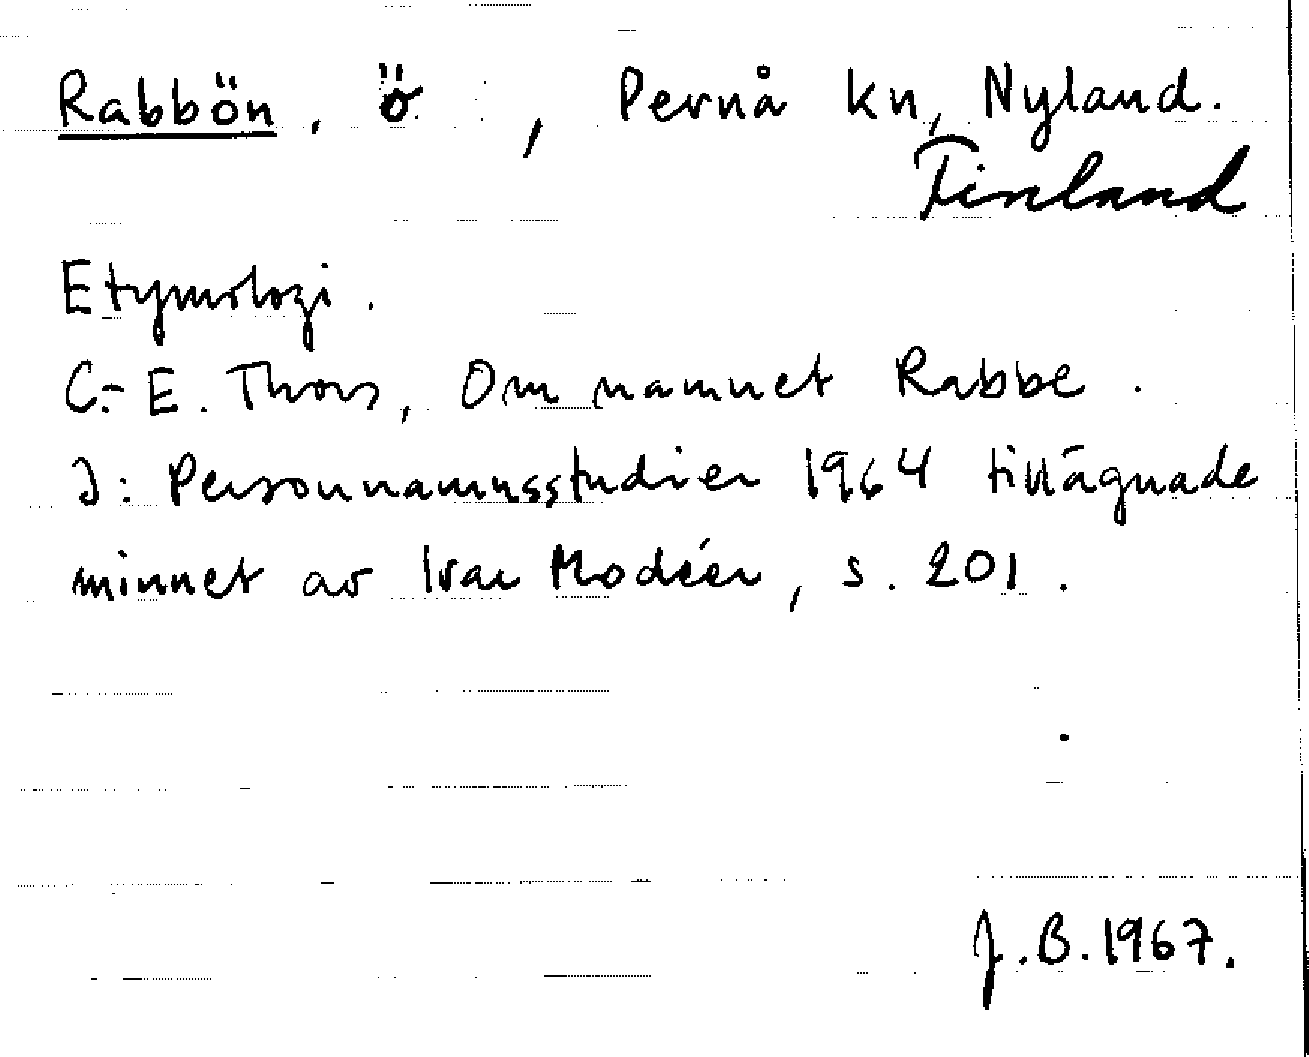 Rabbön, ö, Pernå kn, Nyland.
Finland
Etymologi.
C.-E. Thors, Om namnet Rabbe.
I: Personnamnsstudier 1964 tillägnade
minnet av Ivar Modéer, s. 201.
J.B. 1967.